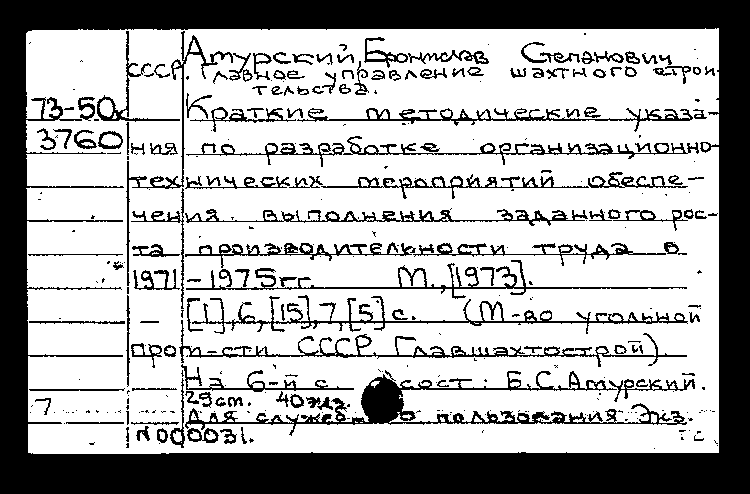 Амурский, Бронислав Степанович
СССР. Главное управление шахтного строи-
тельства.
73-50к Краткие методические указа-
3760 ния по разработке организационно-
технических мероприятий обеспе-
чения выполнения заданного рос-
та производительности труда в
1971-1975 гг. М., [1973].
— [1],6,[15],7,[5] с. (М-во угольной
пром-сти СССР. Главшахтострой).
На 6-й с. сост: Б.С. Амурский.
7 29 см. 40 экз.
Для пользования. Экз.
N000031.